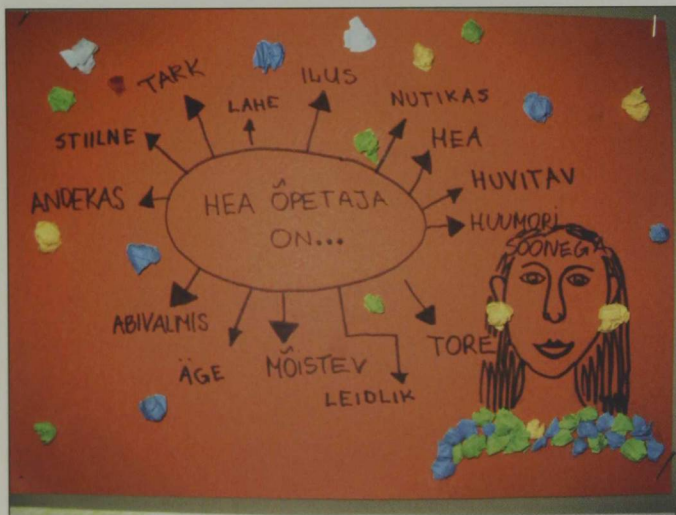 HEA ÕPETAJA
ON...
TARK
LAHE
ILUS
NUTIKAS
HEA
HUVITAV
HUUMORI
SOONEGA
TORE
LEIDLIK
MÕISTEV
ÄGE
ABIVALMIS
ANDEKAS
STIILNE